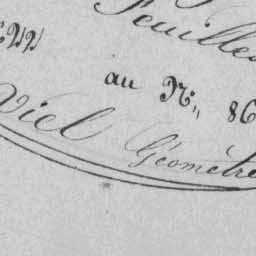 Feuilles
au N° 86
Viel Géomètre